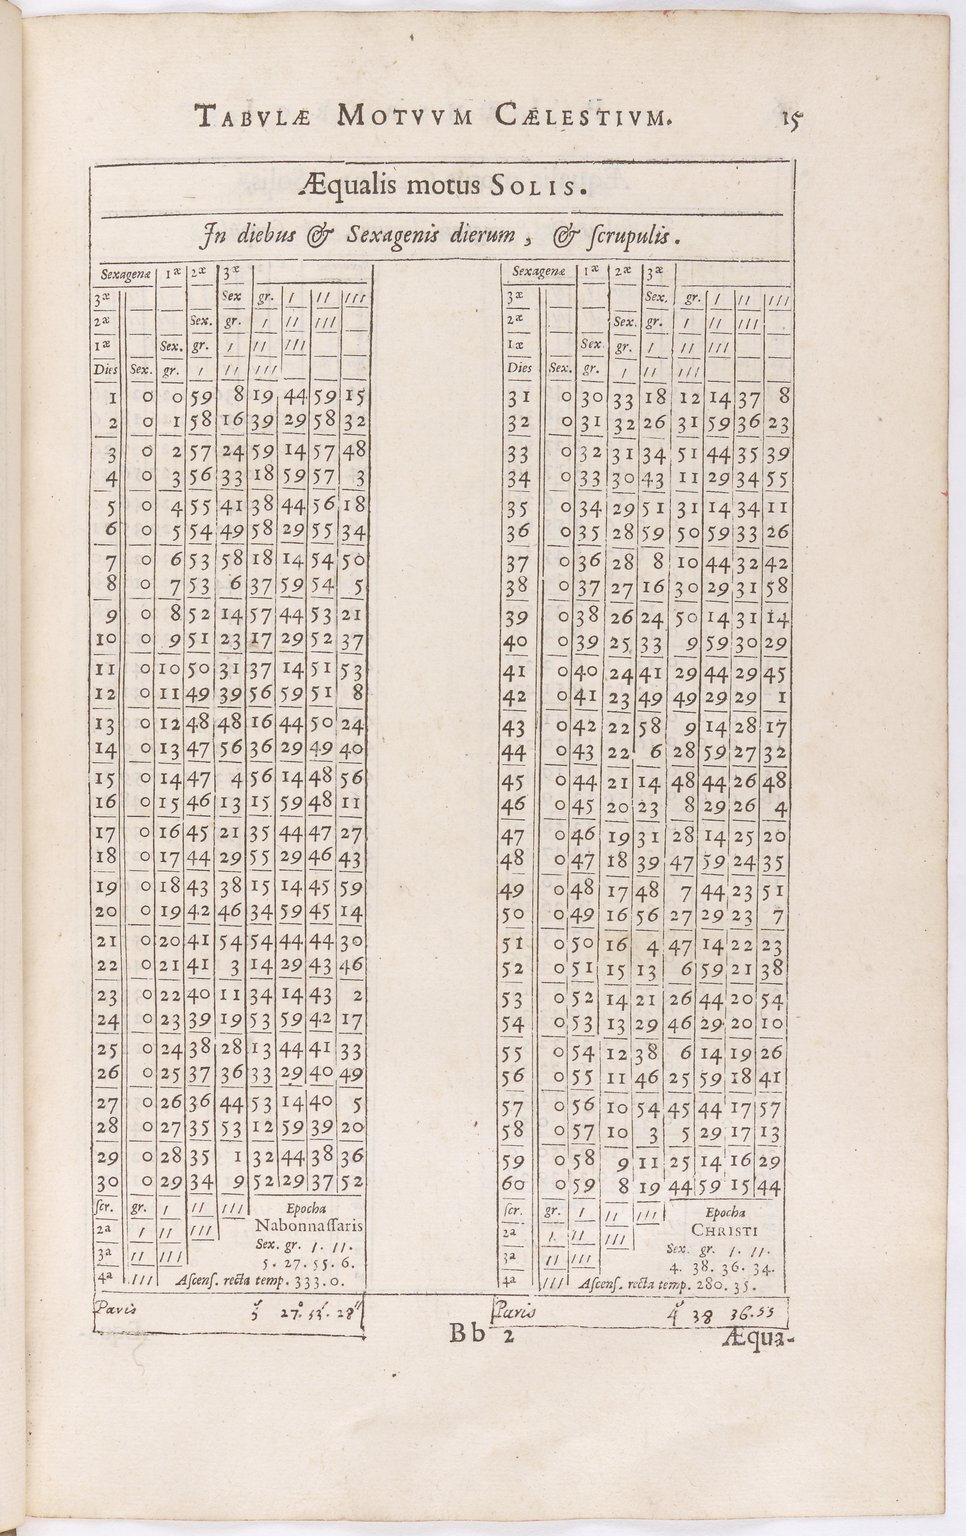 TABVLÆ MOTVVM CÆLESTIVM. 15
Æqualis motus SOLIS.
In diebus & Sexagenis dierum, & ſcrupulis.
Sexagenæ 1æ 2æ 3æ
3æ Sex gr. / // ///
2æ Sex. gr. / // ///
1æ Sex. gr. / // ///
Dies Sex. gr. / // ///
1 0 0 59 8 19 44 59 15
2 0 1 58 16 39 29 58 32
3 0 2 57 24 59 14 57 48
4 0 3 56 33 18 59 57 3
5 0 4 55 41 38 44 56 18
6 0 5 54 49 58 29 55 34
7 0 6 53 58 18 14 54 50
8 0 7 53 6 37 59 54 5
9 0 8 52 14 57 44 53 21
10 0 9 51 23 17 29 52 37
11 0 10 50 31 37 14 51 53
12 0 11 49 39 56 59 51 8
13 0 12 48 48 16 44 50 24
14 0 13 47 56 36 29 49 40
15 0 14 47 4 56 14 48 56
16 0 15 46 13 15 59 48 11
17 0 16 45 21 35 44 47 27
18 0 17 44 29 55 29 46 43
19 0 18 43 38 15 14 45 59
20 0 19 42 46 34 59 45 14
21 0 20 41 54 54 44 44 30
22 0 21 41 3 14 29 43 46
23 0 22 40 11 34 14 43 2
24 0 23 39 19 53 59 42 17
25 0 24 38 28 13 44 41 33
26 0 25 37 36 33 29 40 49
27 0 26 36 44 53 14 40 5
28 0 27 35 53 12 59 39 20
29 0 28 35 1 32 44 38 36
30 0 29 34 9 52 29 37 52
ſcr. gr. / // /// Epocha
2a / // /// Nabonnaſſaris
3a // /// Sex. gr. /. //.
5. 27. 55. 6.
4a /// Aſcenſ. recta temp. 333. 0.
Paris 5 27. 53. 28
Sexagenæ 1æ 2æ 3æ
3æ Sex. gr. / // ///
2æ Sex. gr. / // ///
1æ Sex gr. / // ///
Dies Sex. gr. / // ///
31 0 30 33 18 12 14 37 8
32 0 31 32 26 31 59 36 23
33 0 32 31 34 51 44 35 39
34 0 33 30 43 11 29 34 55
35 0 34 29 51 31 14 34 11
36 0 35 28 59 50 59 33 26
37 0 36 28 8 10 44 32 42
38 0 37 27 16 30 29 31 58
39 0 38 26 24 50 14 31 14
40 0 39 25 33 9 59 30 29
41 0 40 24 41 29 44 29 45
42 0 41 23 49 49 29 29 1
43 0 42 22 58 9 14 28 17
44 0 43 22 6 28 59 27 32
45 0 44 21 14 48 44 26 48
46 0 45 20 23 8 29 26 4
47 0 46 19 31 28 14 25 20
48 0 47 18 39 47 59 24 35
49 0 48 17 48 7 44 23 51
50 0 49 16 56 27 29 23 7
51 0 50 16 4 47 14 22 23
52 0 51 15 13 6 59 21 38
53 0 52 14 21 26 44 20 54
54 0 53 13 29 46 29 20 10
55 0 54 12 38 6 14 19 26
56 0 55 11 46 25 59 18 41
57 0 56 10 54 45 44 17 57
58 0 57 10 3 5 29 17 13
59 0 58 9 11 25 14 16 29
60 0 59 8 19 44 59 15 44
ſcr. gr. / // /// Epocha
2a / // /// CHRISTI
3a // /// Sex. gr. /. //.
4. 38. 36. 34.
4a /// Aſcenſ. recta temp. 280. 35.
Paris 4 38 36. 53
Bb 2 Æqua-